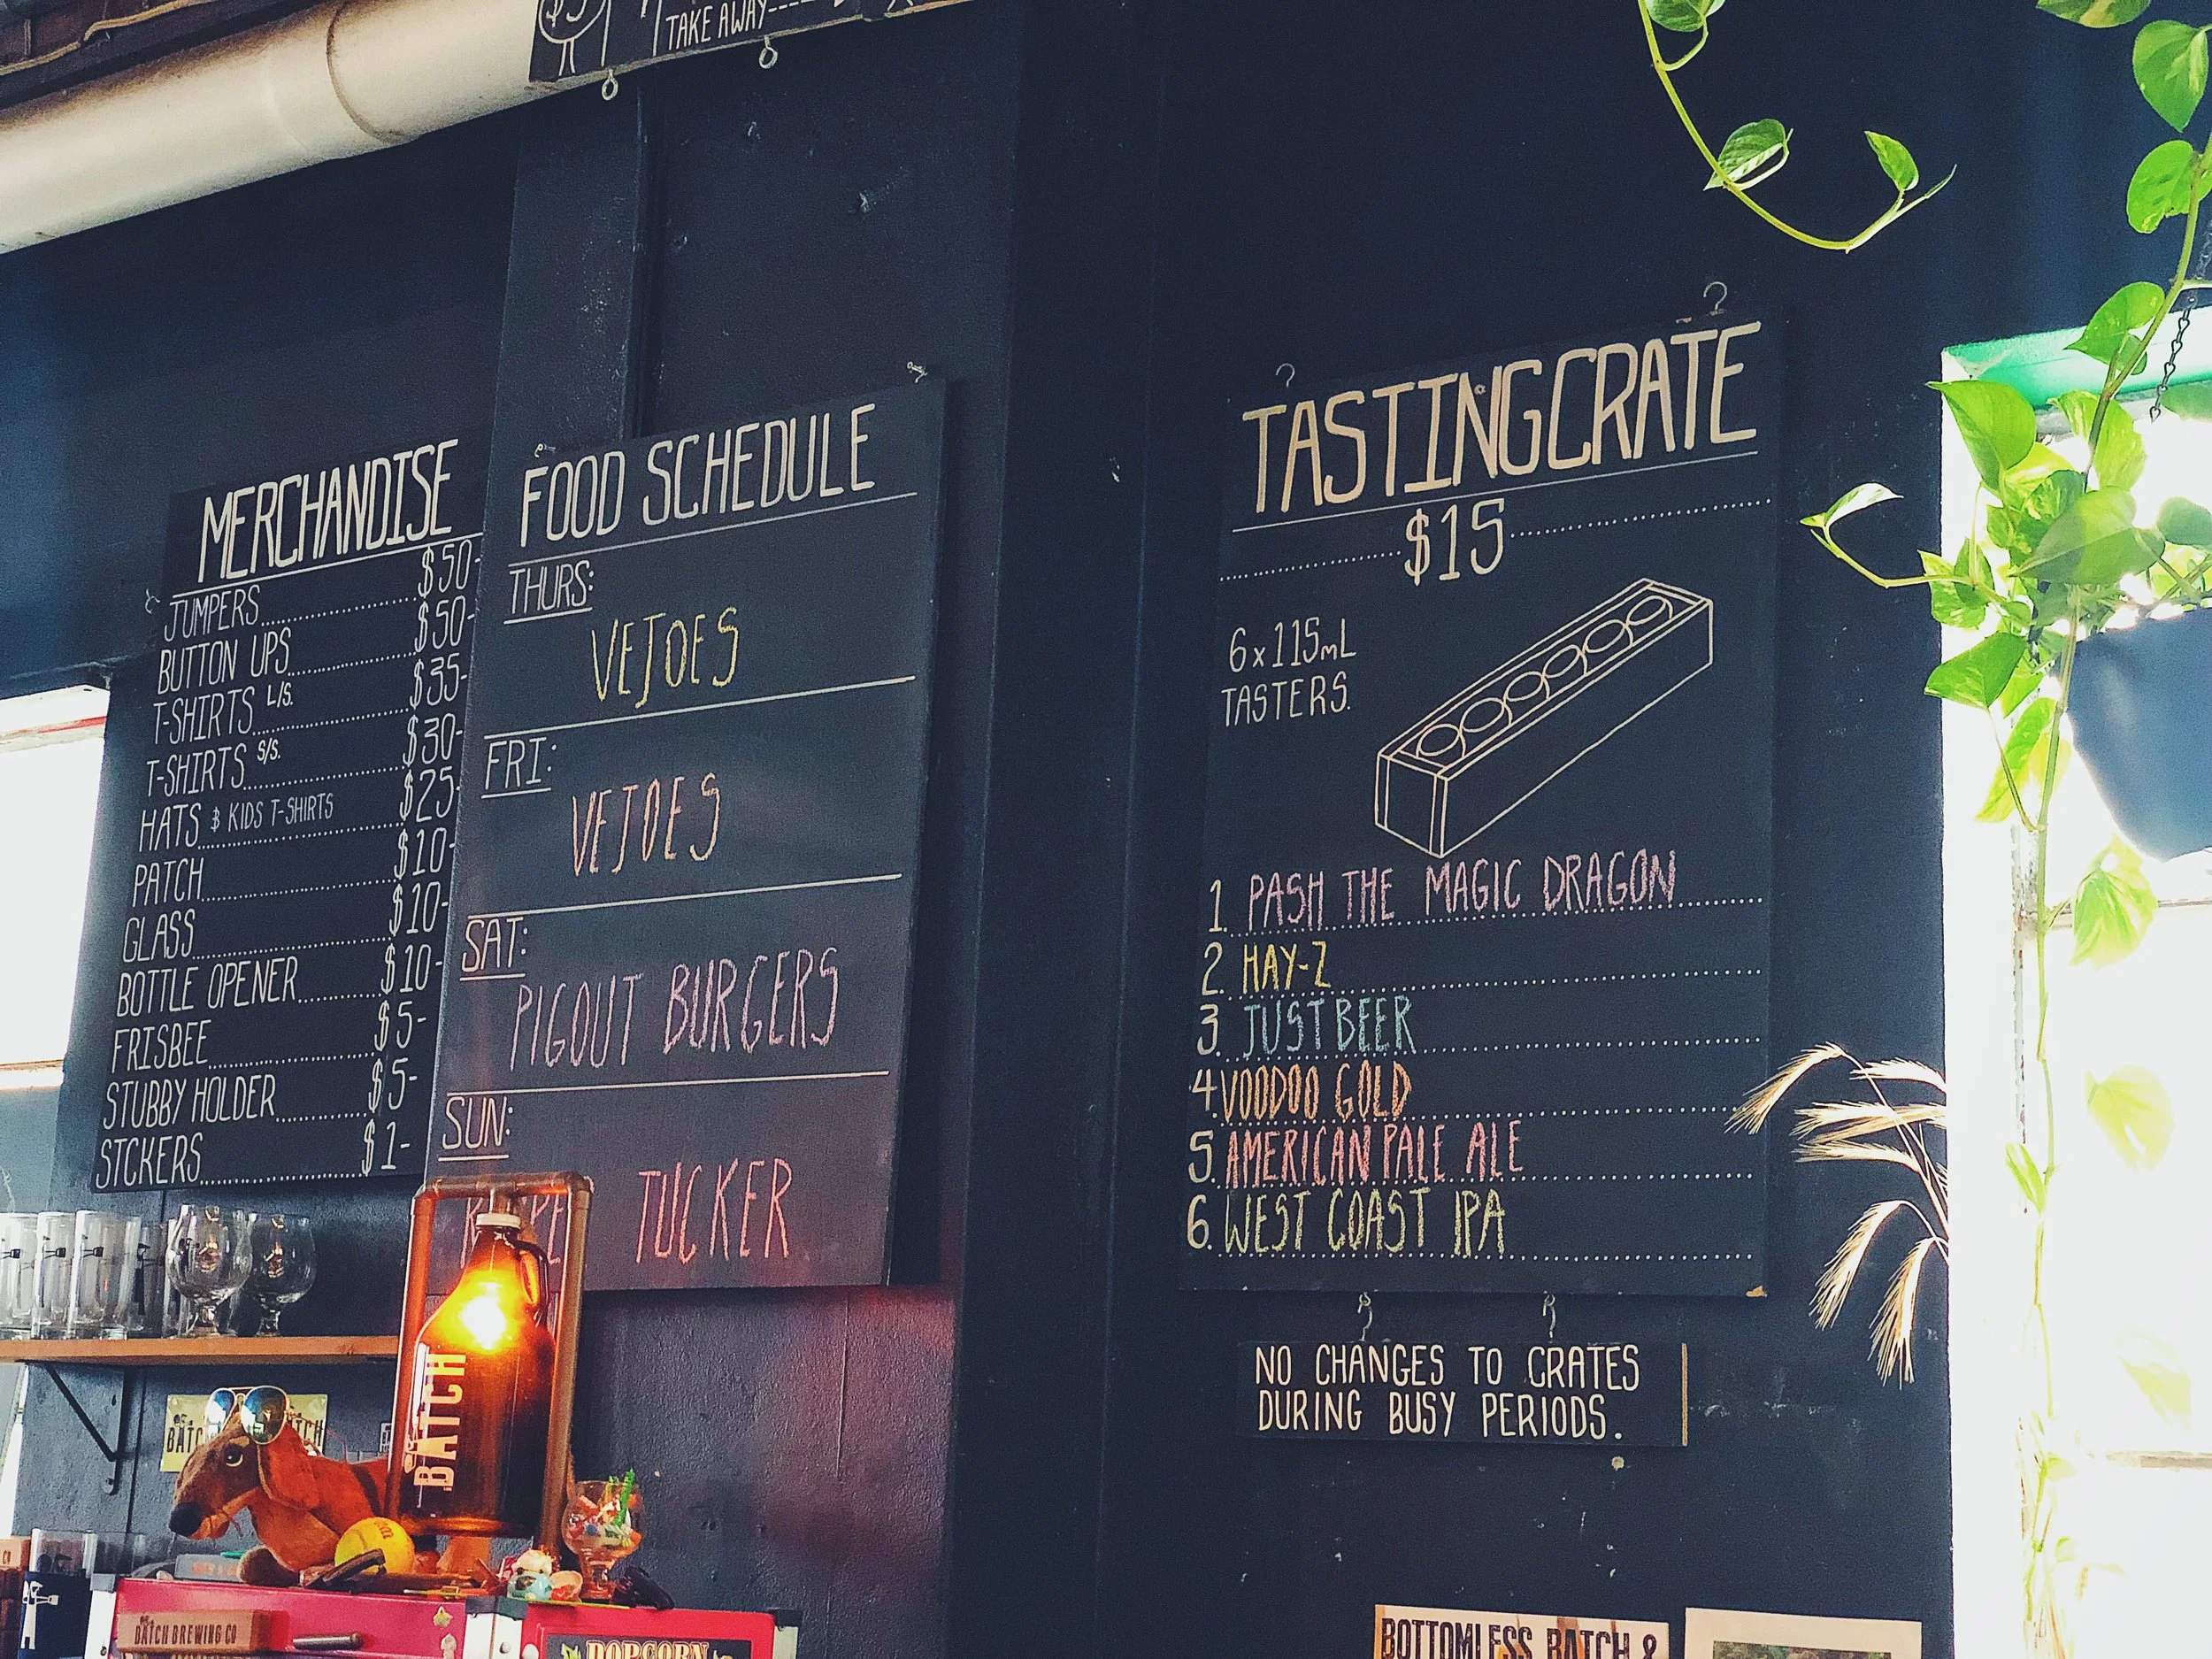 TAKE AWAY----
MERCHANDISE
JUMPERS............ $50-
BUTTON UPS............ $50-
T-SHIRTS L/S. ............ $35-
T-SHIRTS S/S. ............ $30-
HATS & KIDS T-SHIRTS............ $25-
PATCH............ $10-
GLASS............ $10-
BOTTLE OPENER............ $10-
FRISBEE............ $5-
STUBBY HOLDER............ $5-
STCKERS............ $1-
FOOD SCHEDULE
THURS:
VEJOES
FRI:
VEJOES
SAT:
PIGOUT BURGERS
SUN:
TUCKER
TASTING CRATE
$15
6x115mL
TASTERS.
1. PASH THE MAGIC DRAGON
2. HAY-Z
3. JUST BEER
4. VOODOO GOLD
5. AMERICAN PALE ALE
6. WEST COAST IPA
NO CHANGES TO CRATES
DURING BUSY PERIODS.
BATCH
BATCH BREWING CO
POPCORN
BOTTOMLESS BATCH &